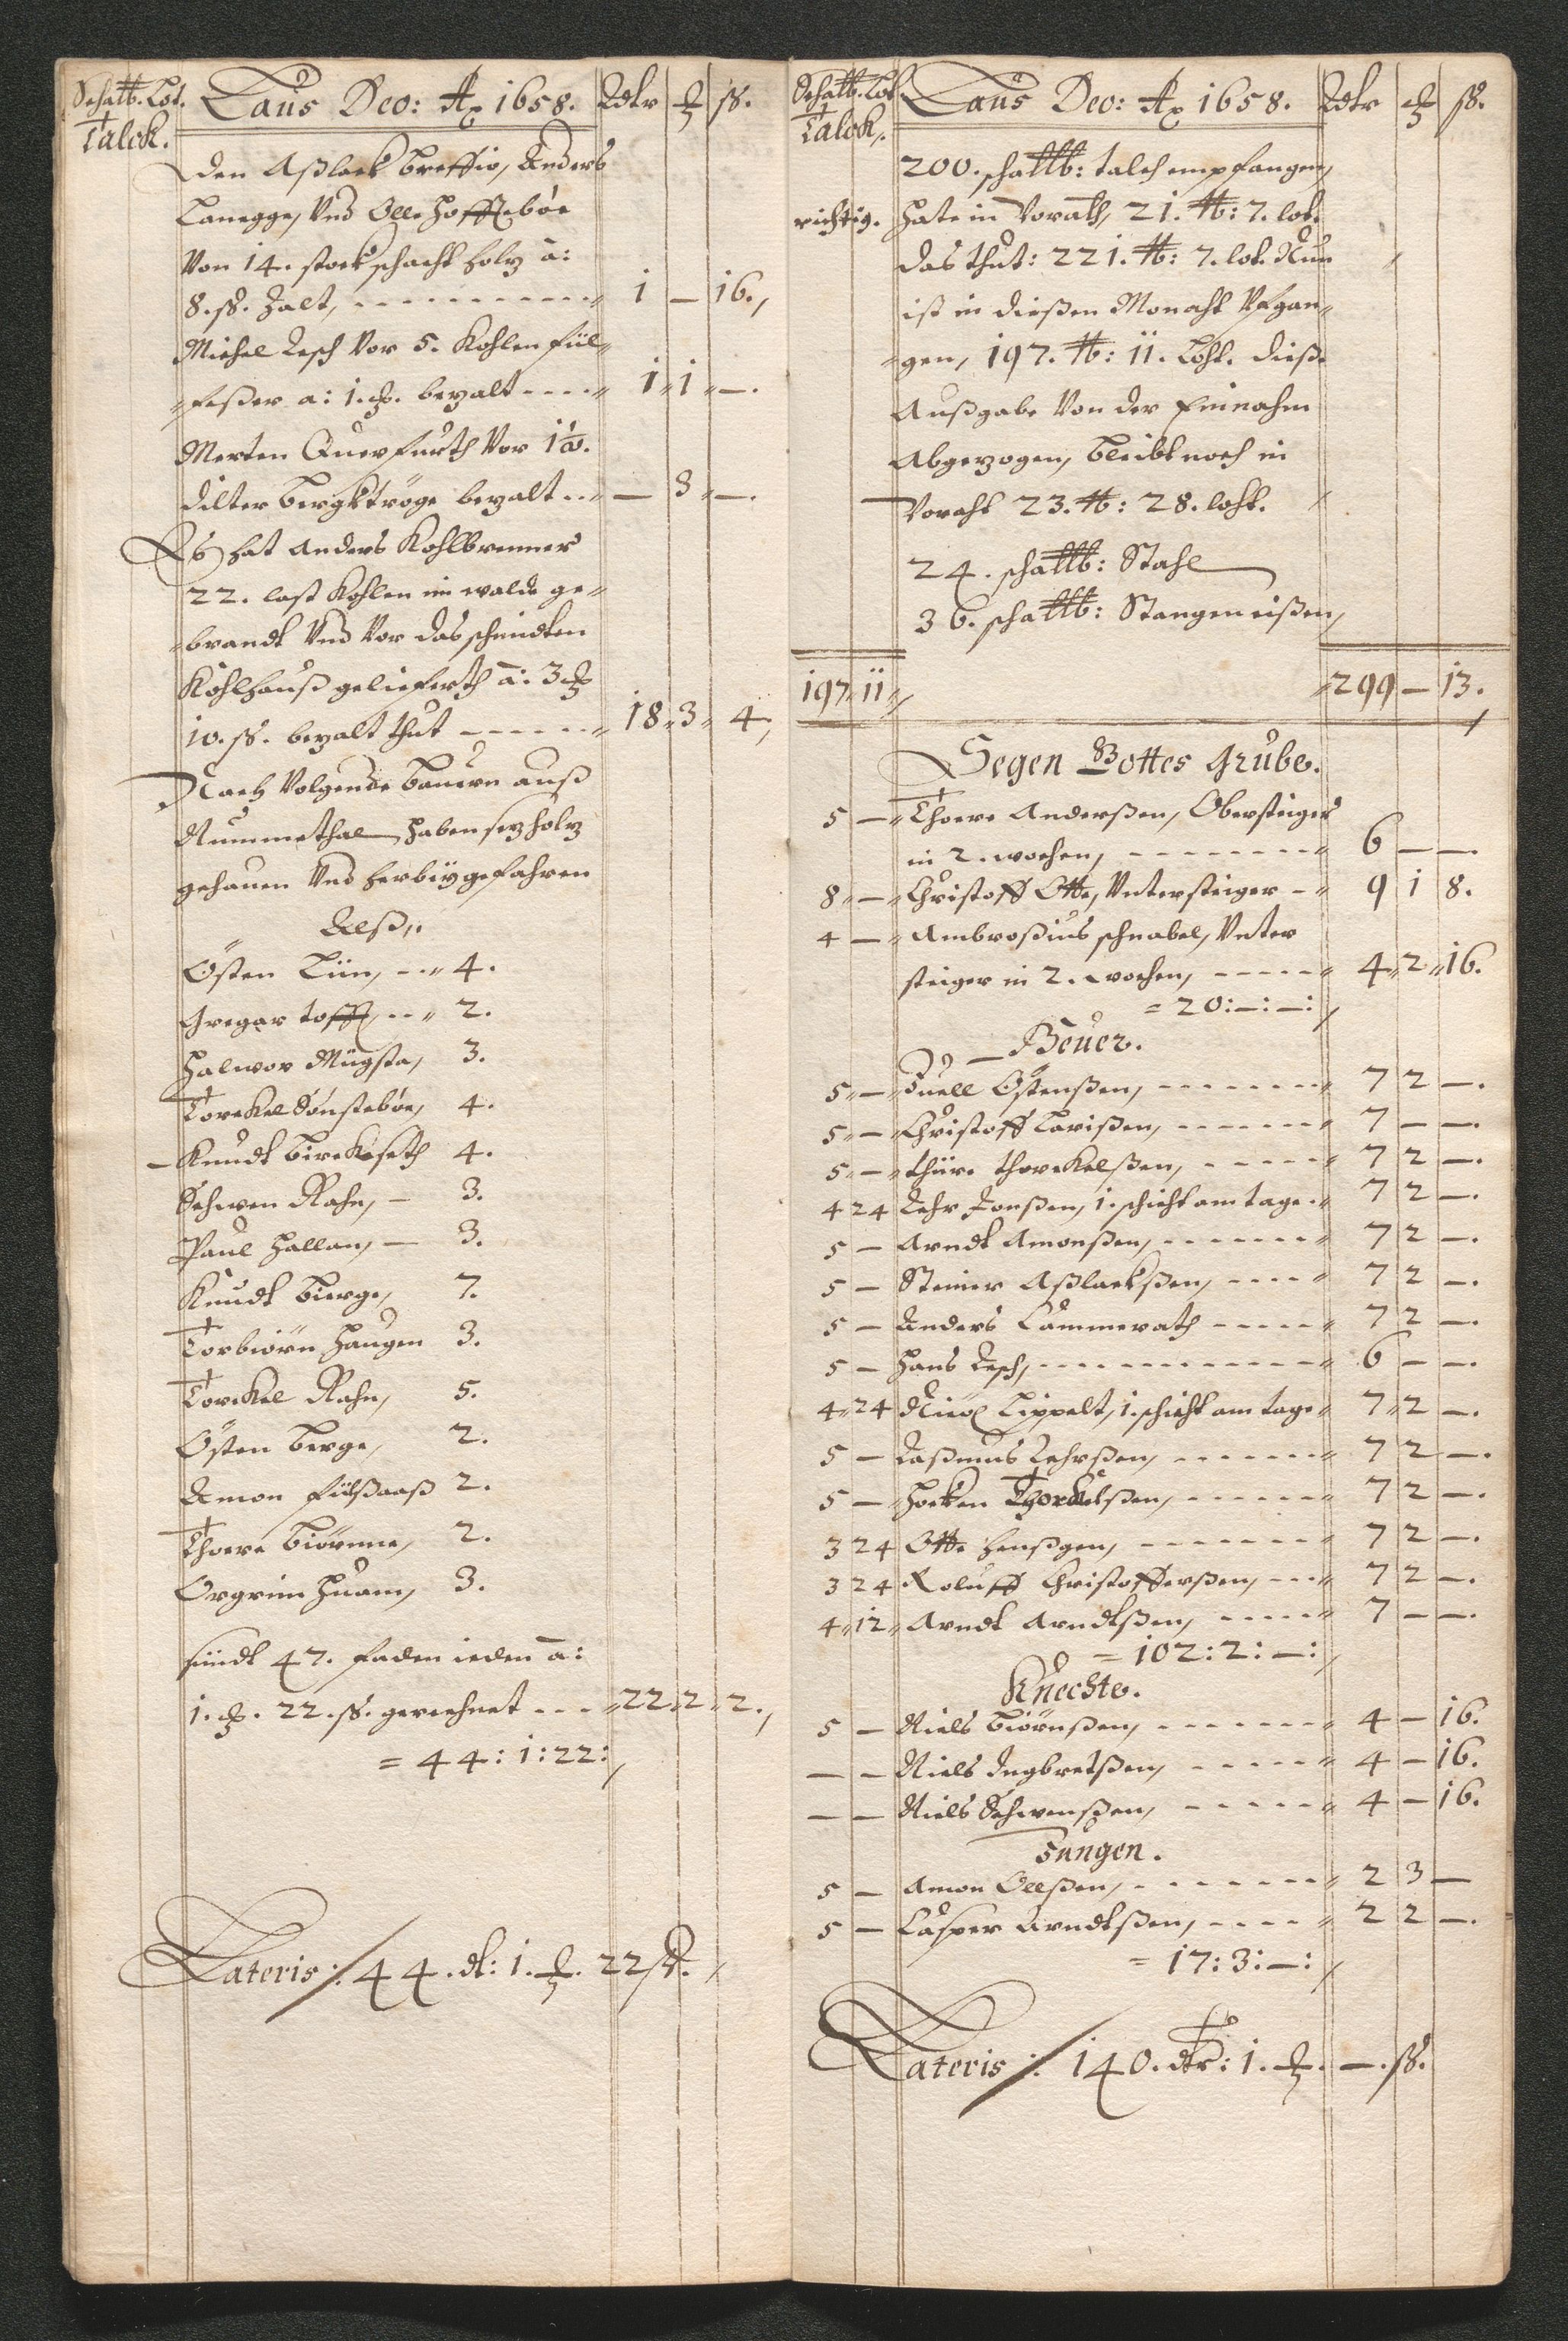 Schatt. Lot.
Talck.
Laus Deo: Ao 1658. Rdlr ß.
Den Aßlack Breffio, Anders
Lanegge, Vnd Olle Hofftebøe
Von 14. stock schacht holz â:
8. ß. Zalt, 1 — 16.
Michel Resch Vor 5. Kohlen fül¬
feßer a: 1. bezalt 1 1 —.
Merten Querfurth Vor 1
dilter bergktröge bezalt — 3 —.
Es hat Anders Kohlbrenner
22. last Kohlen im walde ge¬
brandt Vnd Vor das schmidten
Kohlhauß gelieferth â: 3
10. ß. bezalt thut 18 3 4,
Nach Volgende Bauern auß
Nummethal haben sezholz
gehauen Vnd herbeygefahren
Alß,
Östen Liin, 4.
Gregar toffte, 2.
Halwor Mügsta, 3.
Torckel Sönstebøe, 4.
Knudt Birckeseth 4.
Schwen Rahn, — 3.
Paul Hallan, — 3.
Knudt Bierge, 7.
Torbiörn Haugen 3.
Torckel Rahn, 5.
Östen Berge, 2.
Amon fülßaaß 2.
Thore Biörnne, 2.
Orgrim Huam, 3.
sindt 47. faden ieden â:
1. 22. ß. gerechnet 22 2 2.,
= 44: 1: 22:
Lateris ·/· 44. dl: 1. 22 ß.
Schatt. Lot
Talck.
Laus Deo: Ao 1658. Rdlr ß.
200. schattlb: talch empfangen,
richtig. Hate in Vorath, 21. lb: 7. lot.
das thut: 221. lb: 7. lot. Nun
ist in dießen Monaht Vfgan¬
gen, 197. lb: 11. Loht. dieße
Außgabe Von der Einnahm
Abgezogen, Bleibt noch in
Voraht 23. lb: 28. loht.
24. schattlb: Stahl
36. schattlb: Stangen eißen,
197 11 299 — 13.
Segen Gottes Grube.
5 — Thore Anderßen, Obersteiger
in 2. wochen, 6 — —.
8 — Christoff Otte, Vntersteiger 9 1 8.
4 — Ambroßius schnabel, Vnter
steiger in 2. wochen, 4 2 16.
= 20: —: —:
Heuer.
5 — Juell Östenßen, 7 2 —.
5 — Christoff Larißen, 7 — —.
5 — thüre thorckelßen, 7 2 —.
4 24 Lehr Jonßen, 1. schicht am tage 7 2 —.
5 — Arndt Amonßen, 7 2 —.
5 — Steiner Aßlackßen, 7 2 —.
5 — Anders Lammerath 7 2 —.
5 — Hans Resch, 6 — —.
4 24 Nicol Lippelt, 1. schicht am tage 7 2 —.
5 — Raßmus Lehrßen, 7 2 —.
5 — Hocken Thorckelßen, 7 2 —.
3 24 Otte Henßgen, 7 2 —.
3 24 Roluff Christofferßen, 7 2 —.
4 12 Arndt Arndtßen, 7 — —.
= 102: 2: —:
Knechte.
5 — Niels Biörnßen, 4 — 16.
— — Niels Ingbretßen, 4 — 16.
— — Niels Schwenßen, 4 — 16.
Jungen.
5 — Amon Olleßen, 2 3 —
5 — Casper Arndtßen, 2 2 —.
= 17: 3: —:
Lateris ·/· 140. dlr: 1. —. ß.